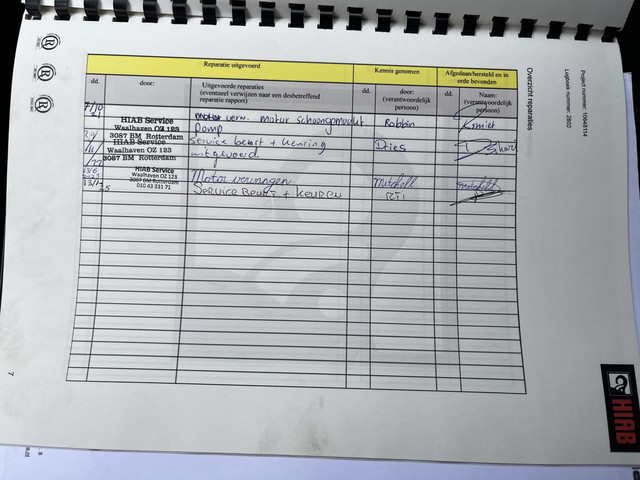 Project nummer: 10648114
Logboek nummer: 2802
Overzicht reparaties
Reparatie uitgevoerd
Kennis genomen
Afgedaan/hersteld en in orde bevonden
dd.
door:
Uitgevoerde reparaties
(eventueel verwijzen naar een desbetreffend
reparatie rapport)
dd.
door:
(verantwoordelijk
persoon)
dd.
Naam:
(verantwoordelijk
persoon)
HIAB Service
Waalhaven OZ 123
3087 BM Rotterdam
verw. Motor schoongemaakt
Pomp
Robbin
HIAB Service
Waalhaven OZ 123
3087 BM Rotterdam
Service beurt + keuring
uitgevoerd
Dries
HIAB Service
Waalhaven OZ 123
3087 BM Rotterdam
010 43 331 71
Motor vervangen
Mitchell
Service Beurt + Keuren
7
HIAB